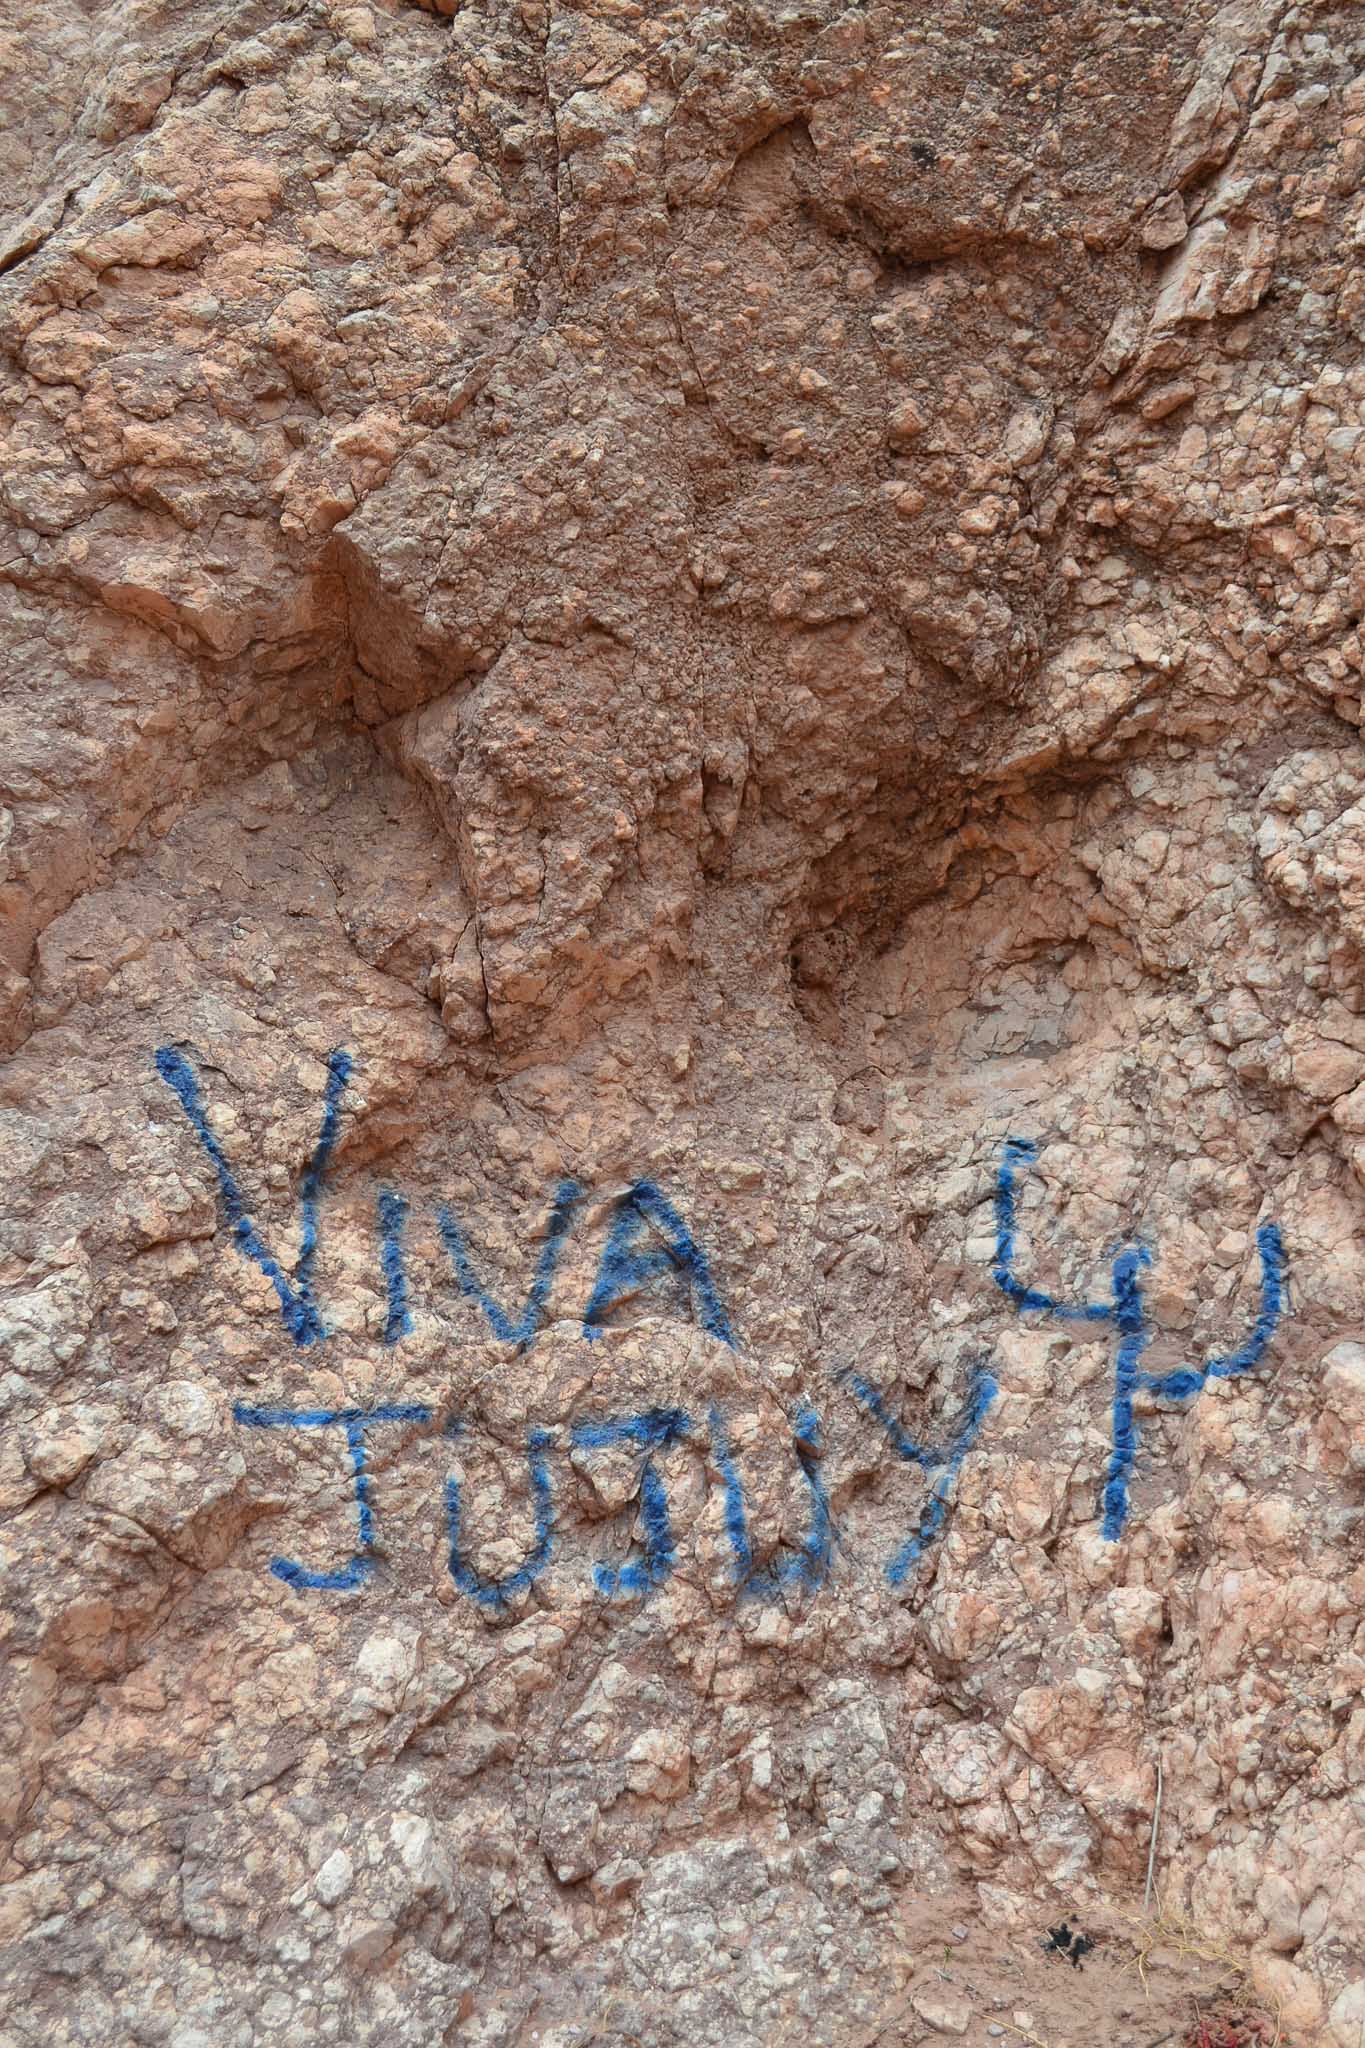 VIVA
JUJUY